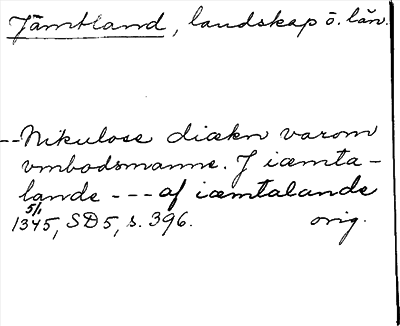 Jämtland, landskap o. län.
--Nikulose diækn varom
vmbodsmanne. J iæmta-
lande --- af iæmtalande
5/1 1345, SD5, s. 396. orig.